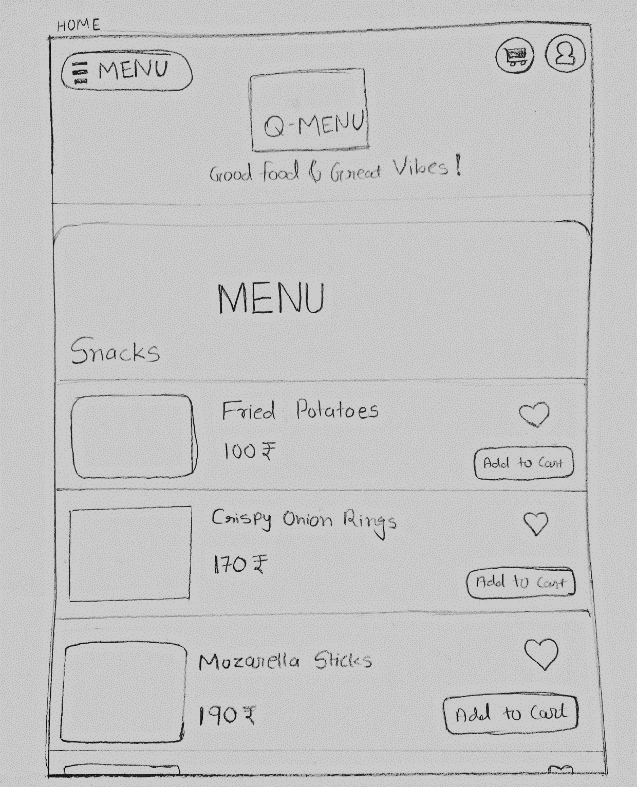 HOME
MENU
Q-MENU
Good food & Great Vibes!
MENU
Snacks
Fried Potatoes
100₹
Add to Cart
Crispy Onion Rings
170₹
Add to Cart
Mozarella Sticks
190₹
Add to Cart